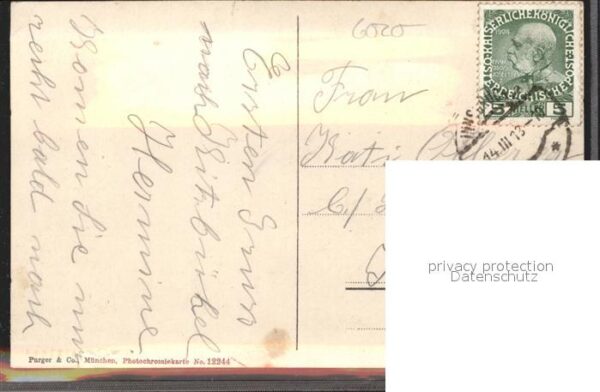 6020
Ersten Gruss
nach Kitzbühel
Hermine
Komen Sie nur
recht bald nach
Frau
Kati
C/
KAISERLICHE KÖNIGLICHE ÖSTERREICHISCHE
1908
5 5
INNS
14.III.13
privacy protection
Datenschutz
Purger & Co., München, Photochromiekarte No. 12244